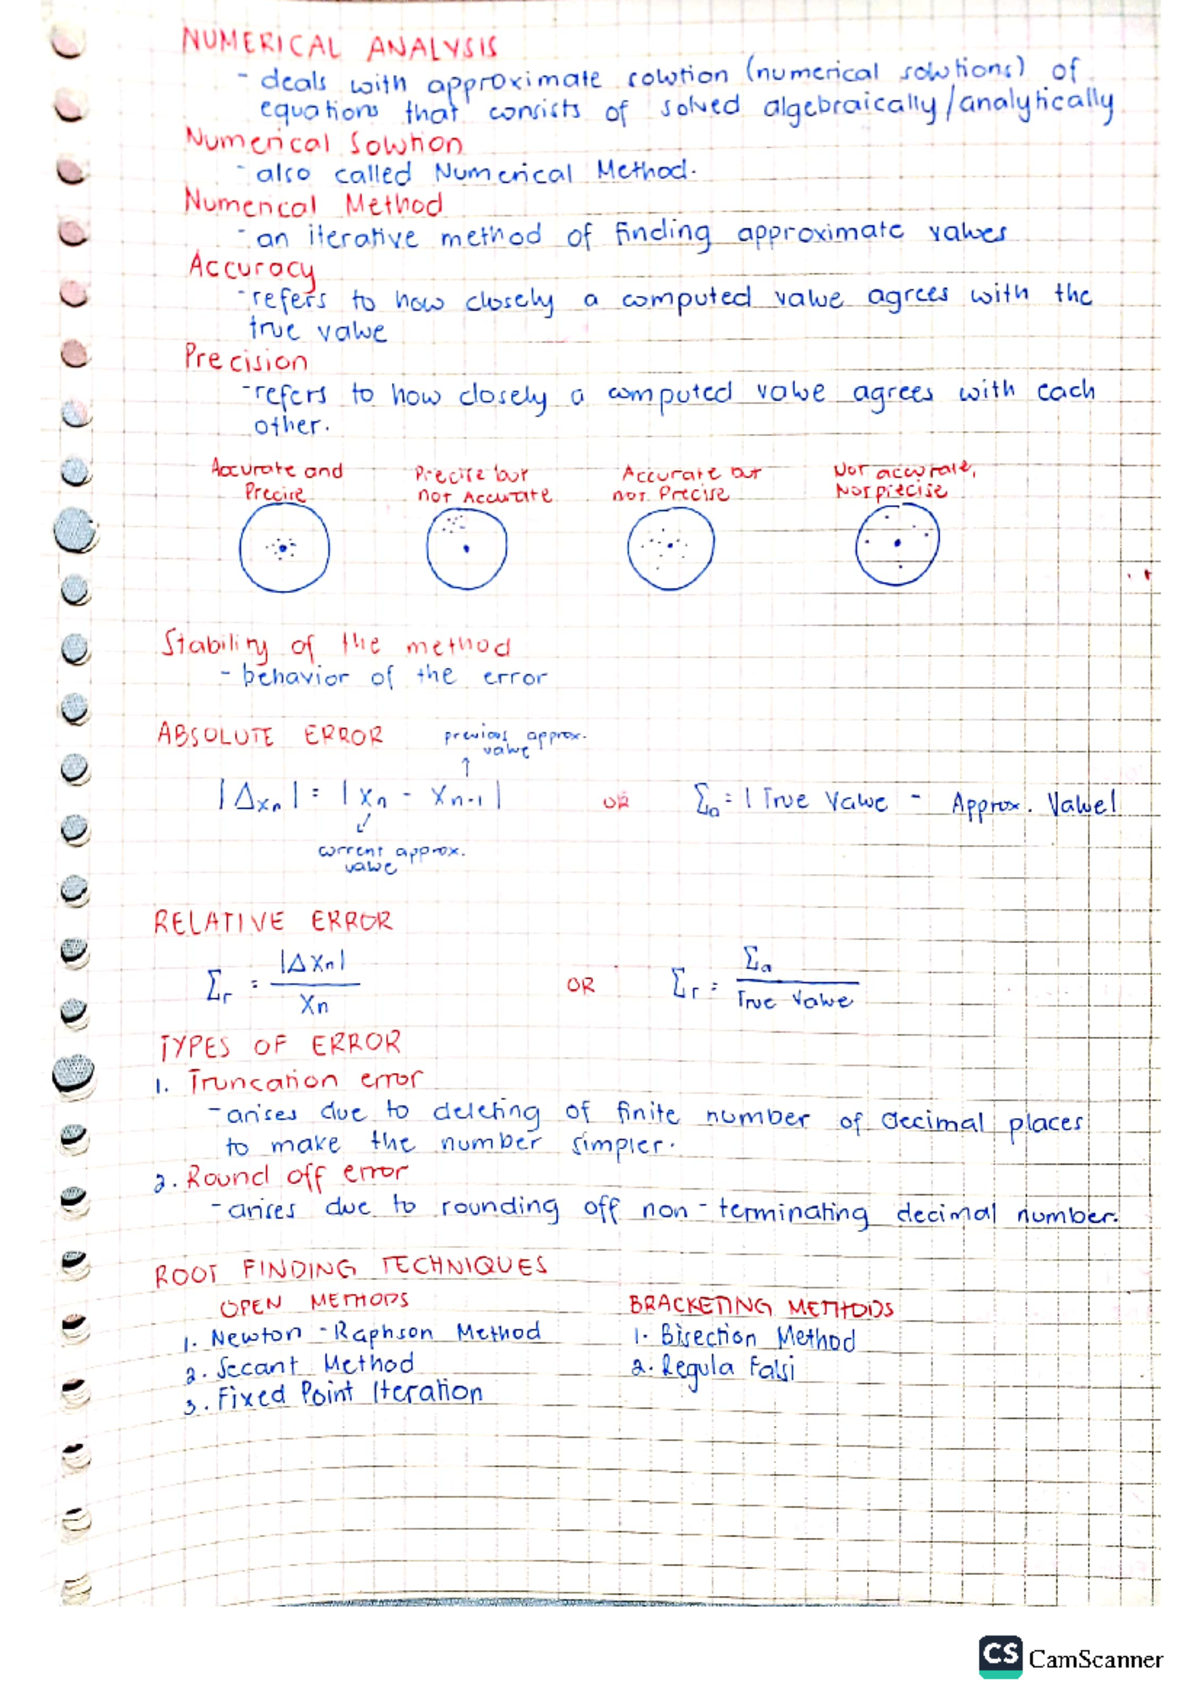 NUMERICAL ANALYSIS
- deals with approximate solution (numerical solutions) of
equations that consists of solved algebraically/analytically
Numerical Solution
- also called Numerical Method.
Numerical Method
- an iterative method of finding approximate values
Accuracy
- refers to how closely a computed value agrees with the
true value
Precision
- refers to how closely a computed value agrees with each
other.
Accurate and Precise
Precise but not Accurate
Accurate but not Precise
Not accurate, Not precise
Stability of the method
- behavior of the error
ABSOLUTE ERROR
previous approx. value
|Δxn| = |xn - xn-1| OR Σa = |True Value - Approx. Value|
current approx. value
RELATIVE ERROR
Σr = |Δxn| / xn OR Σr = Σa / True Value
TYPES OF ERROR
1. Truncation error
- arises due to deleting of finite number of decimal places
to make the number simpler.
2. Round off error
- arises due to rounding off non-terminating decimal number.
ROOT FINDING TECHNIQUES
OPEN METHODS
1. Newton - Raphson Method
2. Secant Method
3. Fixed Point Iteration
BRACKETING METHODS
1. Bisection Method
2. Regula Falsi
CS CamScanner